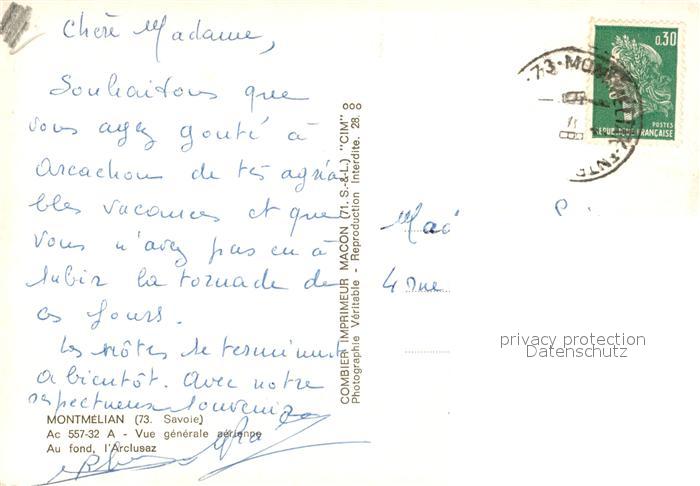 Chère Madame,
Souhaitons que
vous ayez gouté à
Arcachon de très agréa
bles vacances et que
vous n'avez pas eu à
subir la tornade de
ces jours.
Les nôtres se terminent
A bientôt. Avec notre
respectueux souvenir
MONTMÉLIAN (73. Savoie)
Ac 557-32 A - Vue générale aérienne
Au fond, l'Arclusaz
COMBIER IMPRIMEUR MACON (71. S.-&-L.) "CIM"
Photographie Véritable - Reproduction Interdite. 28.
0.30
POSTES
REPUBLIQUE FRANÇAISE
73-MONTMELIAN
Mad
P
4 rue
privacy protection
Datenschutz